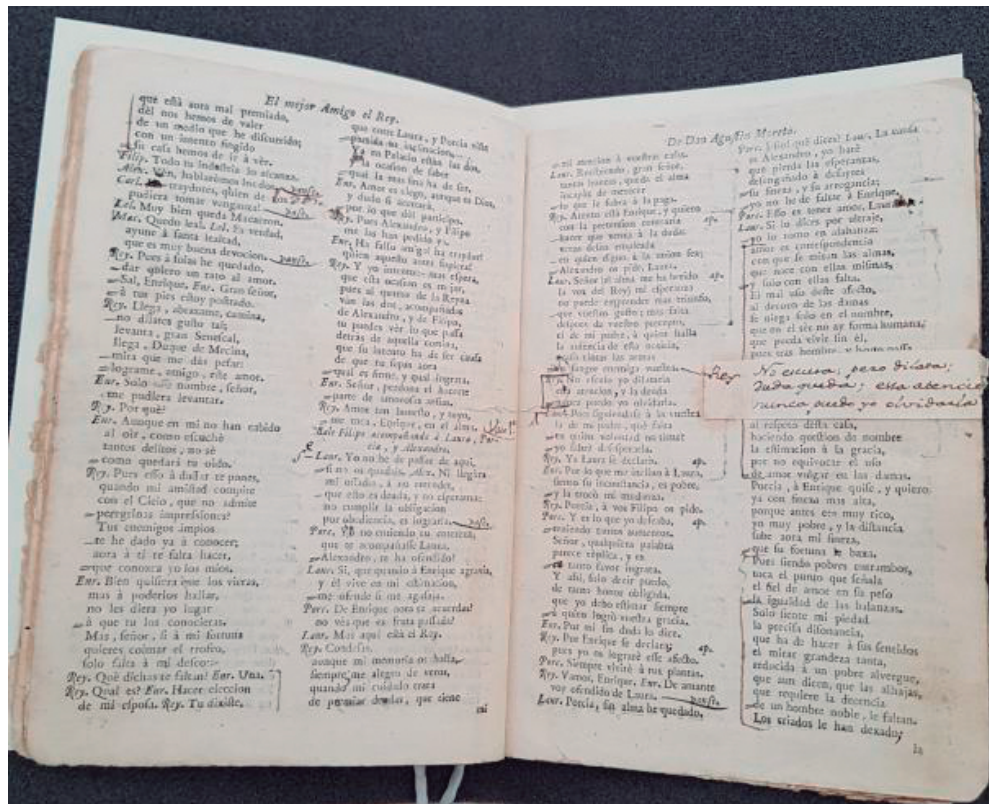 El mejor Amigo el Rey.
que està aora mal premiado,
dèl nos hemos de valer
de un medio que he discurrido;
con un intento fingido
su casa hemos de ir à vèr.
Filip. Todo tu industria lo alcanza.
Alex. Ven, hablarèmos los dos.
Carl. traydores, quien de
pudiera tomar venganza!
Lol. Muy bien queda Macarron.
Mac. Quedo leal. Lol. Es verdad,
ayune à santa lealtad,
que es muy buena devocion.
Rey. Pues à solas he quedado,
dar quiero un rato al amor.
Sal, Enrique. Enr. Gran señor,
à tus pies estoy postrado.
Rey. Llega, abrazame, camina,
no dilates gusto tal;
levanta, gran Senescal,
llega, Duque de Mecina,
mira que me dàs pesar:
lograme, amigo, este amor.
Enr. Solo nombre, señor,
me pudiera levantar.
Rey. Por què?
Enr. Aunque en mi no han cabido
al oir, como escuchè
tantos delitos, no sè
como quedarà tu oido.
Rey. Pues esso à dudar te pones,
quando mi amistad compite
con el Cielo, que no admite
peregrinas impressiones?
Tus enemigos impios
te he dado yà à conocer;
aora à tì te falta hacer,
que conozca yo los mios.
Enr. Bien quisiera que los vieras,
mas à poderlos hallar,
no les diera yo lugar
à que tu los conocieras.
Mas, señor, si à mi fortuna
quieres colmar el trofeo,
solo falta à mi deseo:-
Rey. Què dichas te faltan? Enr. Una.
Rey. Qual es? Enr. Hacer eleccion
de mi esposa. Rey. Tu dixiste,
que entre Laura, y Porcia viste
partida tu inclinacion.
Ya en Palacio estàn las dos,
la ocasion de saber
qual la mas fina ha de ser.
Enr. Amor es ciego, aunque es Dios,
y dudo si acertarà,
por lo que dèl participo.
Rey. Pues Alexandro, y Filipo
me las han pedido yà.
Enr. Ha falsa amiga! ha traydora!
quien aquesto antes supiera!
Rey. Y yo intento: mas espera,
que esta ocasion es mejor,
pues al quarto de la Reyna
van las dos, acompañadas
de Alexandro, y de Filipo,
tu puedes vèr lo que passa
detràs de aquella cortina,
que su intento ha de ser causa
de que tu sepas aora
qual es firme, y qual ingrata.
Enr. Señor, perdona el hacerte
parte de amorosas ansias.
Rey. Amor tan honesto, y tuyo,
me toca, Enrique, en el alma. Vase
Sale Filipo acompañando à Laura, Por-
cia, y Alexandro.
Laur. Yo no he de passar de aqui,
si no os quedais. Alex. Ni llegàra
mi osadìa, à no entender,
que esto es deuda, y no esperanza:
no cumplir la obligacion
por obediencia, es ingrata.
Porc. Yo no entiendo tu entereza,
que te acompañasse Laura,
Alexandro, te ha ofendido?
Laur. Si, que quando à Enrique agravia,
y èl vive en mi estimacion,
me ofende si me agasaja.
Porc. De Enrique aora te acuerdas!
no vès que es fruta passada?
Laur. Mas aqui està el Rey.
Rey. Condesas,
aunque mi memoria os halla,
siempre me alegro de veros,
quando mi cuidado trata
de pagar deudas, que tiene
mi
De Don Agustin Moreto.
mi atencion à vuestras casas.
Laur. Recibiendo, gran señor,
tantas honras, queda el alma
incapàz de merecer
lo que le sobra à la paga.
Rey. Atento està Enrique, y quiero ap.
con la pretension contraria
hacer que venza à la duda:
Alexandro os pide, Laura.
Laur. Señor (el alma me ha herido ap.
la voz del Rey) mi esperanza
no puede emprender mas triunfo,
que vuestro gusto; mas falta
despues de vuestro precepto,
el de mi padre, à quien halla
la ausencia de esta noticia,
sangre enemiga vuestra
Rey. No escuso yo dilatarla
Rey No escusa, pero dilata;
Duda queda; esta atencion
nunca puedo yo olvidarla
la de mi padre, què falta
en quien voluntad no tiene
yo sabrè desesperarla.
Rey. Yà Laura se declarò. ap.
Enr. Por lo que me inclina à Laura,
siento su inconstancia, es pobre,
y la trocò mi mudanza.
Rey. Porcia, à vos Filipo os pide.
Porc. Y es lo que yo deseaba, ap.
Señor, qualquiera palabra
parece rèplica, y es
à tanto favor ingrata.
Y assi, solo decir puedo,
de tanto honor obligada,
que yo debo estimar siempre
à quien logrò vuestra gracia.
Enr. Por mì sin duda lo dice.
Rey. Por Enrique se declara; ap.
pues yo os lograrè esse afecto.
Porc. Siempre vivirè à tus plantas.
Rey. Vamos, Enrique. Enr. De amante
voy ofendido de Laura.
Laur. Porcia, sin alma he quedado.
Porc. Por què? què dices? Laur. La causa
es Alexandro, yo harè
que pierda las esperanzas,
desengañado à desayres
su fineza, y su arrogancia;
yo no he de faltar à Enrique.
Porc. Esso es tener amor, Laura
Laur. Si lo dices por ultraje,
yo lo tomo en alabanza:
amor es correspondencia
con que se miran las almas,
que nace con ellas mismas,
y solo con ellas falta.
El mal uso deste afecto,
al decoro de las damas
se niega solo en el nombre,
que en el sèr no ay forma humana,
que pueda vivir sin èl,
al respeto desta casa,
haciendo question de nombre
la estimacion à la gracia,
por no equivocar el uso
de amor vulgar en las damas.
Porcia, à Enrique quise, y quiero
yà con fineza mas alta,
porque antes era muy rico,
yo muy pobre, y la distancia
sube aora mi fineza,
que su fortuna le baxa.
Pues siendo pobres entrambos,
toca el punto que señala
el fiel de amor en su peso
la igualdad de las balanzas.
Solo siente mi piedad
la precisa disonancia,
que ha de hacer à sus sentidos
el mirar grandeza tanta,
reducida à un pobre alvergue,
que aun dicen, que las alhajas,
que requiere la decencia
de un hombre noble, le faltan.
Los criados le han dexado;
la